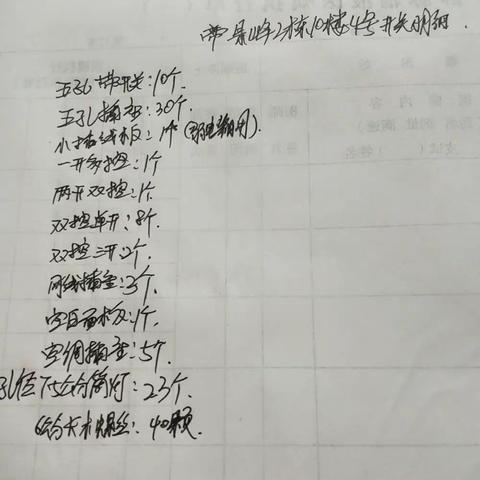 景14字2栋10楼4号开关明细.
五孔带开关:10个.
五孔插座:30个.
小接线板:1个(弱电箱用).
一开多控:1个
两开双控:1个.
双控单开:8个.
双控三开:2个.
网线插座:3个.
空白面板:1个.
空调插座:5个.
孔径75公分筒灯:23个.
6公分大木螺丝:40颗.